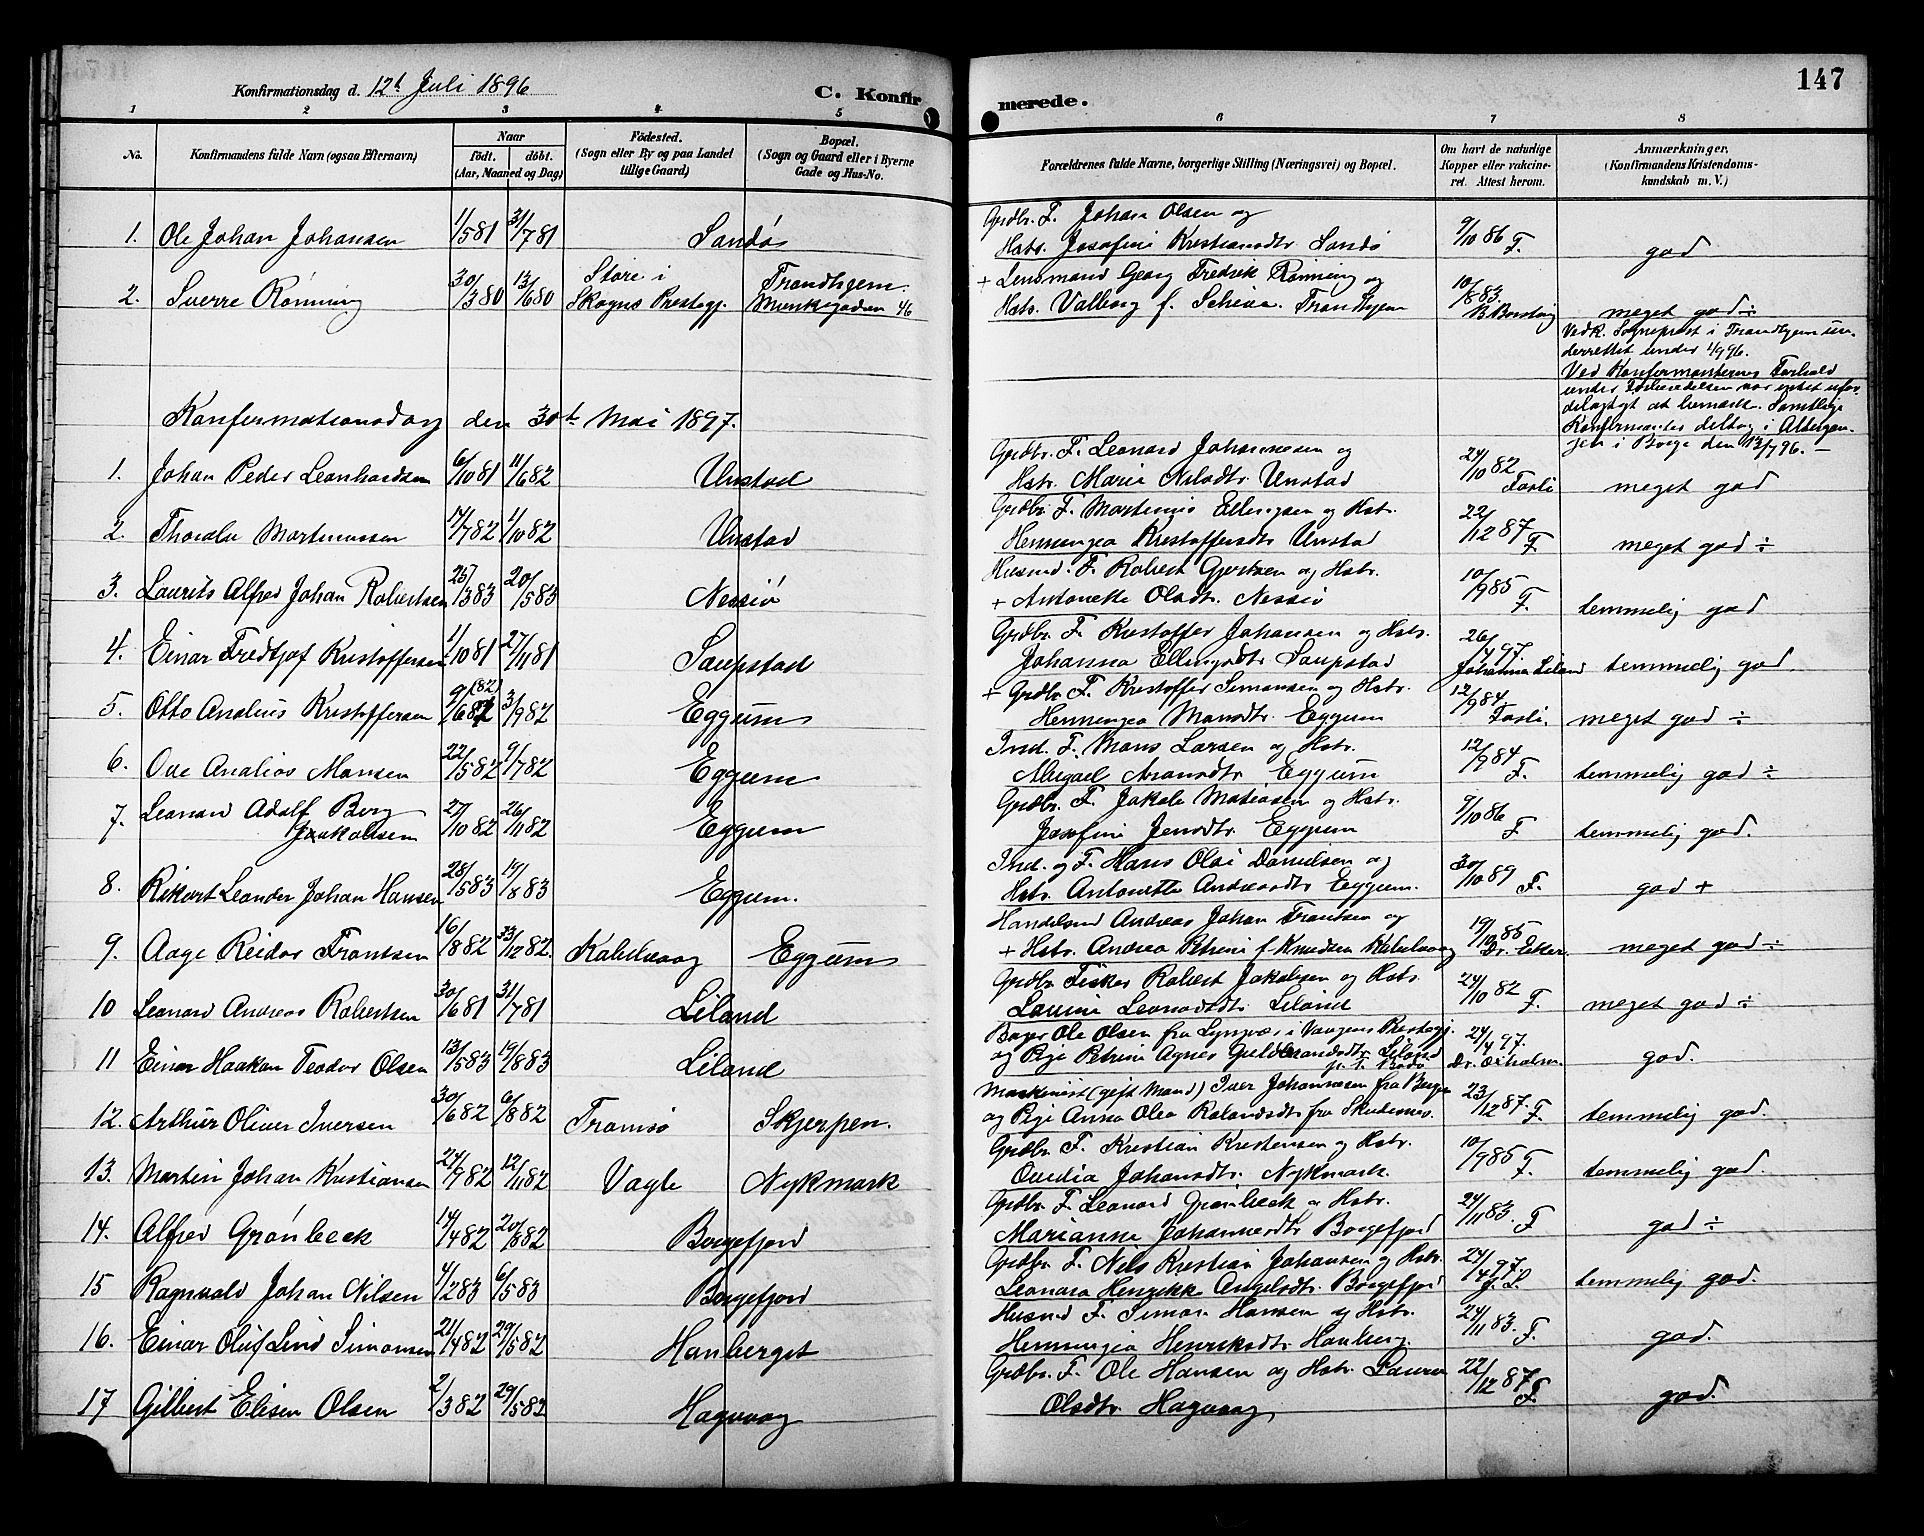 147
Konfirmationsdag d. 12t Juli 1896
C. Konfirmerede.
1 2 3 4 5 6 7 8
No.
Konfirmandens fulde Navn (ogsaa Efternavn)
Naar
födt. döbt.
(Aar, Maaned og Dag)
Födested.
(Sogn eller By og paa Landet
tillige Gaard)
Bopæl.
(Sogn og Gaard eller i Byerne
Gade og Hus-No.
Forældrenes fulde Navne, borgerlige Stilling (Næringsvei) og Bopæl.
Om havt de naturlige
Kopper eller vakcine-
ret. Attest herom.
Anmærkninger.
(Konfirmandens Kristendoms-
kundskab m. V.)
1. Ole Johan Johansen 1/5 81 31/7 81 Sandö
Grdbr. F. Johan Olsen og
Hstr. Josefine Kristiansdtr Sandö 9/10 86 F. god
2. Sverre Rönning 30/3 80 13/6 80 Store i
Skogns Prestegj. Trondhjem
Munkegaden 46
+ Lensmand Georg Fredrik Rönning og
Hstr. Valborg f. Trondhjem 10/8 83. meget god ÷
Vedk. Sogneprest i Trondhjem un-
derrettet under 4/9 96.
Ved Konfermanternes Forhold
under Forberedelsen var intet ufor-
delagtigt at bemærke. Samtlige
Konfirmanter deltog i Altergan-
gen i Borge den 12/7 96. –
Konfermationsdag den 30t Mai 1897.
1. Johan Peder Leonhardsen 6/10 81 11/6 82 Unstad
Grdbr. F. Leonard Johannesen og
Hstr. Marie Nilsdtr Unstad 24/10 82 Fasli meget god
2. Thoralv Martinussen 17/7 82 1/10 82 Unstad
Grdbr. F. Martinus Ellingsen og Hstr.
Henningea Kristoffersdtr Unstad 22/12 87 F meget god ÷
3. Laurits Alfred Johan Robertsen 25/3 83 20/5 83 Nessiö
Husmd. F. Robert Gjertsen og Hstr.
+ Antonette Olsdtr. Nessiö 10/9 85 F. temmelig god
4. Einar Fredtjof Kristoffersen 1/10 81 27/11 81 Saupstad
Grdbr. F. Kristoffer Johansen og Hstr.
Johanna Ellingsdtr Saupstad 26/4 97 Johanna Liland temmelig god
5. Otto Analius Kristoffersen 9/6 82 (82) 3/9 82 Eggum
+ Grdbr. F. Kristoffer Simonsen og Hstr.
Henningea Monsdtr. Eggum 12/9 84 Fasli. meget god ÷
6. Ove Analios Monsen 22/5 82 9/7 82 Eggum
Ind. F. Mons Larsen og Hstr.
Abigael Aronsdtr Eggum 12/9 84 F. temmelig god ÷
7. Leonard Adolf Berg
Jakobsen 27/10 82 26/11 82 Eggum
Grdbr. F. Jakob Matiasen og Hstr.
Josefine Jensdtr. Eggum 9/10 86 F temmelig god.
8. Rikart Leander Johan Hansen 28/5 83 19/8 83 Eggum.
Ind. og F. Hans Olai Danielsen og
Hstr. Antonette Andreasdtr Eggum. 30/10 89 F. god +
9. Aage Reidar Frantsen 16/8 82 33/12 82. Kabelvaag Eggum
Handelsmd Andreas Johan Frantsen og
+ Hstr. Andrea Petrine f. Knudsen Kabelvaag 19/10 85 meget god ÷
10 Leonard Andreas Robertsen 30/6 81 31/7 81 Liland
Grdbr. Fisker Robert Jakobsen og Hstr.
Lovine Leonardsdtr Liland 24/10 82 F. meget god ÷
11 Einar Haakon Teodor Olsen 13/5 83 19/8 83 Liland
Bager Ole Olsen fra Lyngvær i Vaagens Prestegj.
og Pige Petrine Agnes Guldbrandsdtr Liland
p. t. Bodö 24/4 97. god.
12. Arthur Oliver Iversen 30/6 82 6/8 82 Tromsö Skjerpen.
Maskinist (gift Mand) Iver Johannesen fra Bergen
og Pige Anna Olea Rolandsdtr fra Skudesnes. 23/12 87 F. temmelig god.
13. Martin Johan Kristiansen 24/9 82 12/11 82 Vagle Nykmark
Grdbr. F. Kristian Kristensen og Hstr.
Ovedia Johansdtr. Nykmark. 10/9 85 F. temmelig god.
14. Alfred Grönbeck 14/4 82 20/8 82 Borgefjord
Grdbr. F. Leonard Grönbeck og Hstr.
Marianne Johannesdtr Borgefjord 24/11 83. F god ÷
15 Ragnvald Johan Nilsen 4/2 83 6/5 83 Borgefjord
Grdbr. F. Nils Kristian Johansen og Hstr.
Leonora Henrikke Angelsdtr Borgefjord 24/4 97. J. L. temmelig god.
16. Einar Oluf Lind Simonsen 21/4 82 29/5 82 Hanberget
Husmd F. Simon Hansen og Hstr.
Henningea Henriksdtr Hanberg. 24/11 83. F. god.
17 Gilbert Elisen Olsen 2/3 82 29/5 82 Hagvaag
Grdbr. F. Ole Hansen og Hstr. Laura
Olsdtr Hagvaag 22/12 87 F. god.